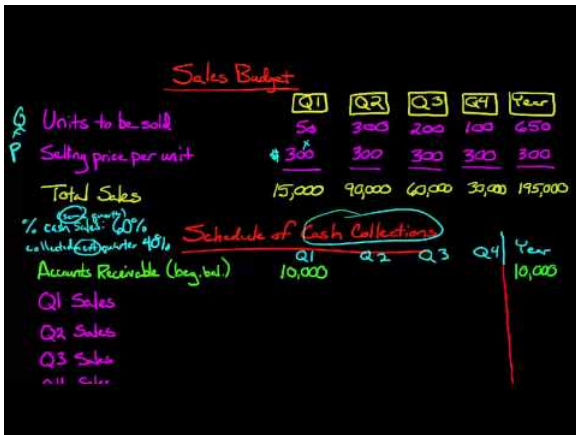 Sales Budget
Q1 Q2 Q3 Q4 Year
Q Units to be sold 50 300 200 100 650
x
P Selling price per unit $ 300 300 300 300 300
Total Sales 15,000 90,000 60,000 30,000 195,000
(same quarter)
% cash sales: 60%
collected next quarter 40%
Schedule of Cash Collections
Q1 Q2 Q3 Q4 Year
Accounts Receivable (beg. bal.) 10,000 10,000
Q1 Sales
Q2 Sales
Q3 Sales